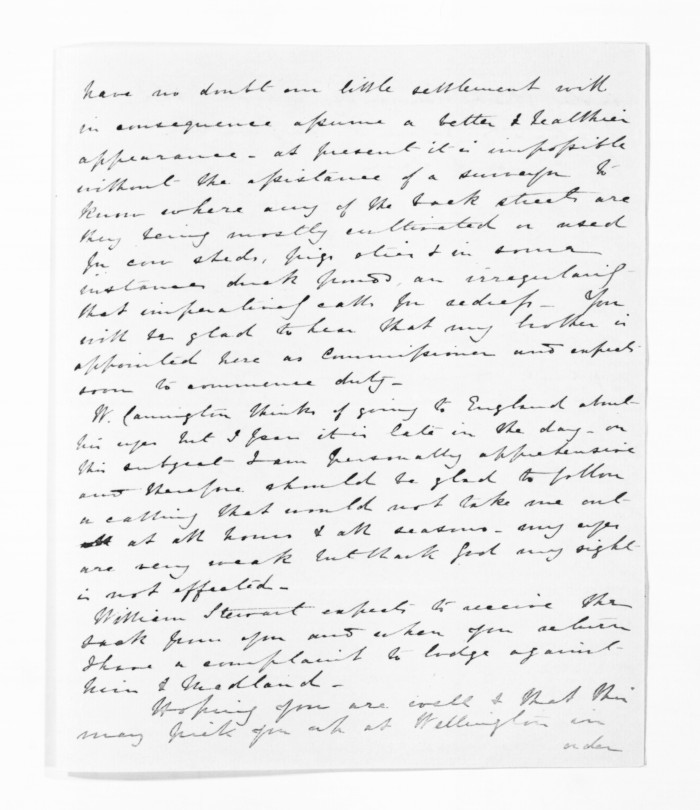 have no doubt our little settlement will
in consequence assume a better & healthier
appearance - at present it is impossible
without the assistance of a surveyor to
know where any of the back streets are
they being mostly cultivated or used
for cow sheds, pigs sties & in some
instances duck ponds, an irregularity
that imperatively calls for redress - You
will be glad to hear that my brother is
appointed here as Commissioner and expects
soon to commence duty -
W. thinks of going to England about
his eyes but I fear it is late in the day - on
this subject I am personally apprehensive
and therefore should be glad to follow
a calling that would not take me out
at all hours & all seasons - my eyes
are very weak but thank God my sight
is not affected -
William Stewart expects to receive the
sack from you and when you return
I have a complaint to lodge against
him & Medland -
Hoping you are well & that this
may pick you up at Wellington in
order